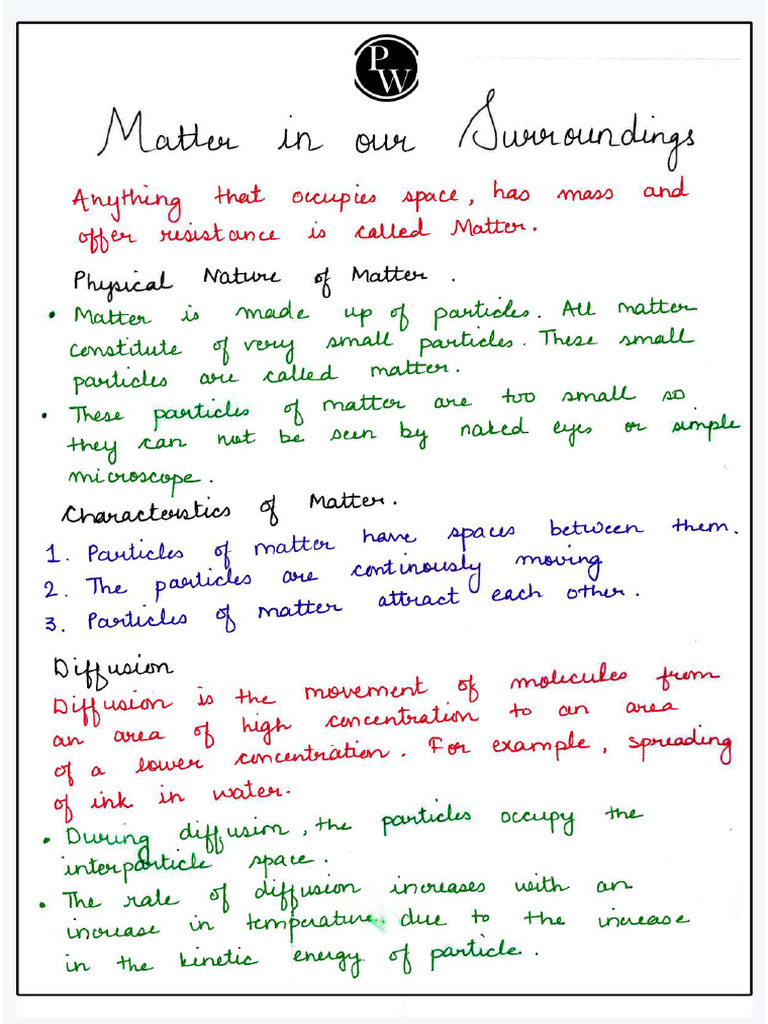 PW
Matter in our Surroundings
Anything that occupies space, has mass and
offer resistance is called Matter.
Physical Nature of Matter.
• Matter is made up of particles. All matter
constitute of very small particles. These small
particles are called matter.
• These particles of matter are too small so
they can not be seen by naked eyes or simple
microscope.
Characterstics of Matter.
1. Particles of matter have spaces between them.
2. The particles are continously moving
3. Particles of matter attract each other.
Diffusion
Diffusion is the movement of molecules from
an area of high concentration to an area
of a lower concentration. For example, spreading
of ink in water.
• During diffusion, the particles occupy the
interparticle space.
• The rate of diffusion increases with an
increase in temperature due to the increase
in the kinetic energy of particle.